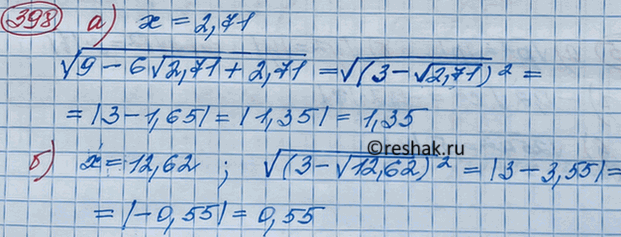 398 а) x = 2,71
√(9 − 6√2,71 + 2,71) = √(3 − √2,71)² =
= |3 − 1,65| = |1,35| = 1,35
©reshak.ru
б) x = 12,62 ; √(3 − √12,62)² = |3 − 3,55| =
= |−0,55| = 0,55